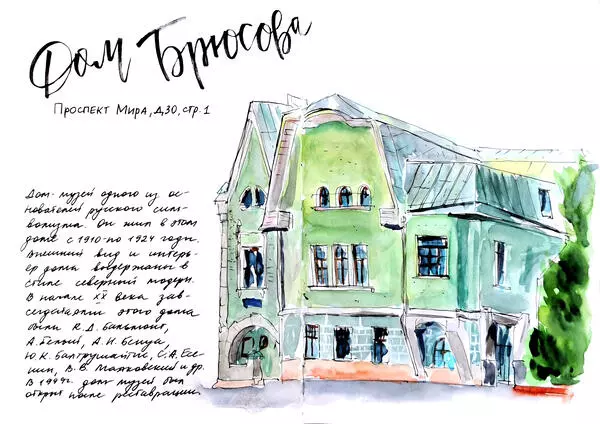 Дом Брюсова
Проспект Мира, д.30, стр.1
Дом-музей одного из ос-
нователей русского сим-
волизма. Он жил в этом
доме с 1910 по 1924 годы.
Внешний вид и интерь-
ер дома выдержаны в
стиле северный модерн.
В начале XX века зав-
сегдатаями этого дома
были К.Д. Бальмонт,
А. Белый, А.Н. Бенуа,
Ю.К. Балтрушайтис, С.А. Есе-
нин, В.В. Маяковский и др.
В 1999г. дом-музей был
открыт после реставрации.